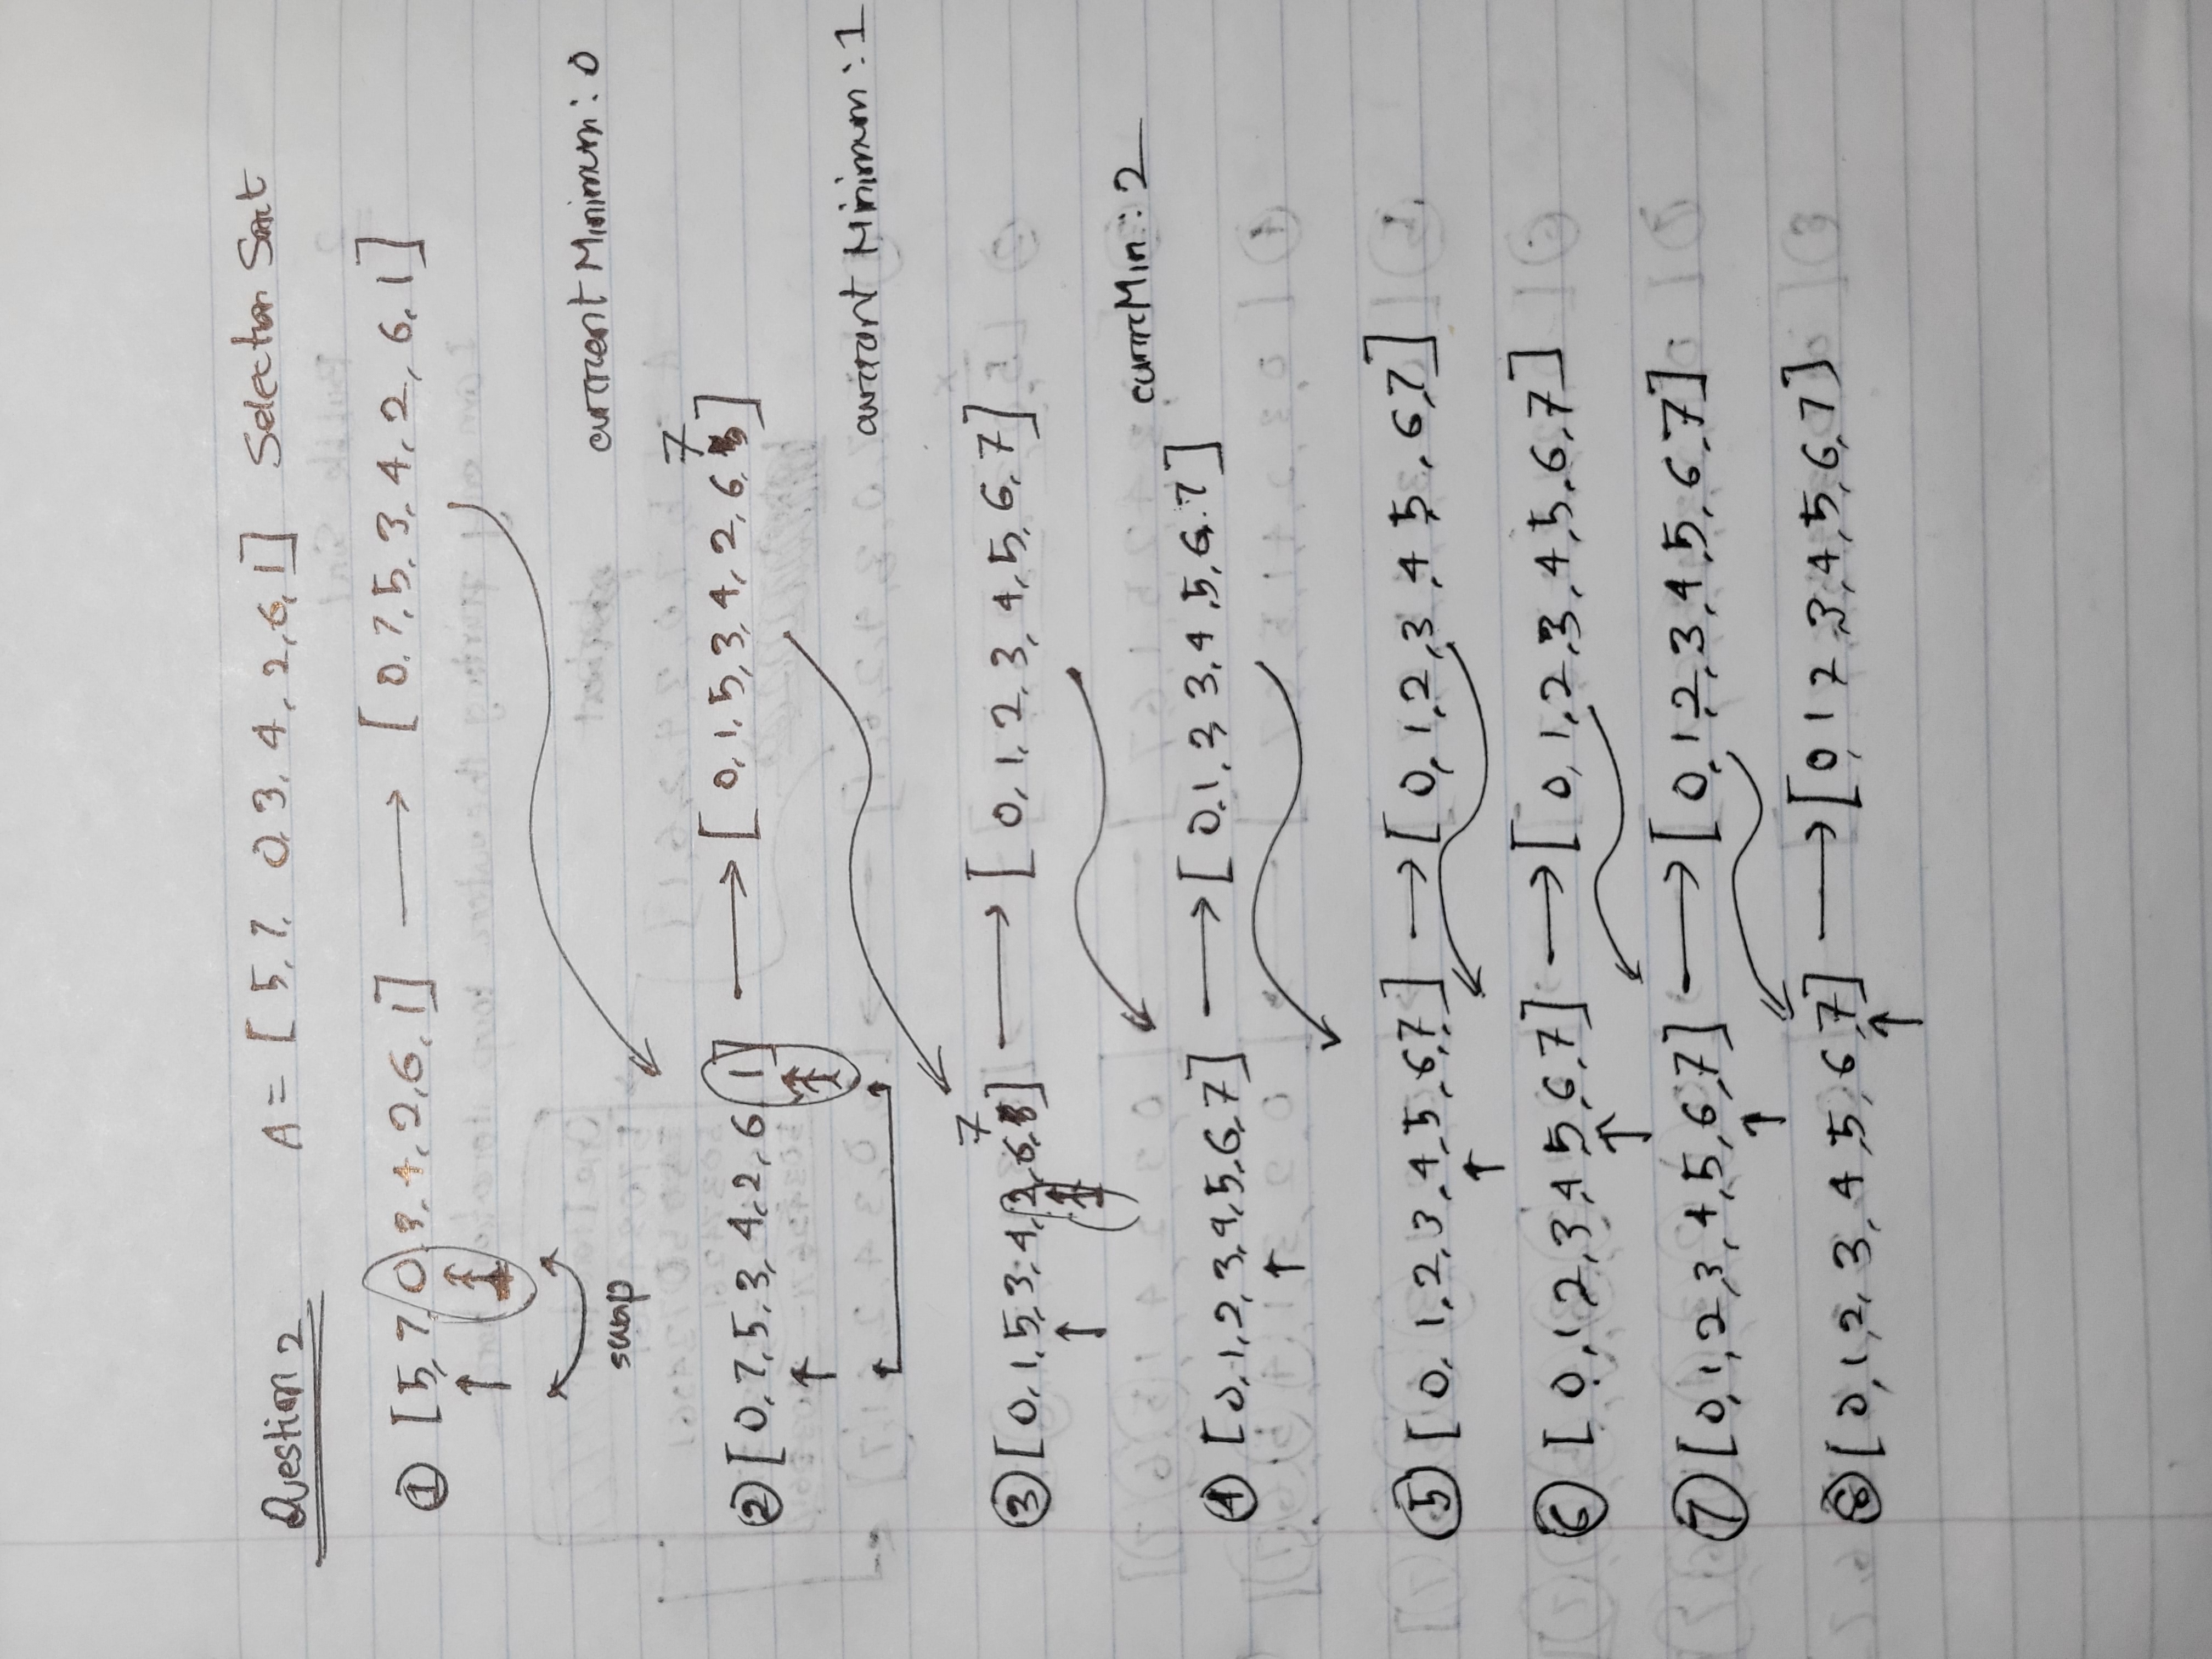 Question 2 A = [ 5, 7, 0, 3, 4, 2, 6, 1 ] Selection Sort
① [5, 7, 0, 3, 4, 2, 6, 1] → [ 0, 7, 5, 3, 4, 2, 6, 1 ]
swap
current Minimum: 0
7
② [ 0, 7, 5, 3, 4, 2, 6, 1] → [ 0, 1, 5, 3, 4, 2, 6, ]
current Minimum: 1
7
③ [ 0, 1, 5, 3, 4, 2, 6, ] → [ 0, 1, 2, 3, 4, 5, 6, 7 ]
currMin: 2
④ [0, 1, 2, 3, 4, 5, 6, 7] → [ 0, 1, 2, 3, 4, 5, 6, 7 ]
⑤ [ 0, 1, 2, 3, 4, 5, 6, 7 ] → [ 0, 1, 2, 3, 4, 5, 6, 7 ]
⑥ [ 0, 1, 2, 3, 4, 5, 6, 7 ] → [ 0, 1, 2, 3, 4, 5, 6, 7 ]
⑦ [ 0, 1, 2, 3, 4, 5, 6, 7 ] → [ 0, 1, 2, 3, 4, 5, 6, 7 ]
⑧ [ 0, 1, 2, 3, 4, 5, 6, 7 ] → [ 0, 1 2 3, 4, 5, 6, 7 ]